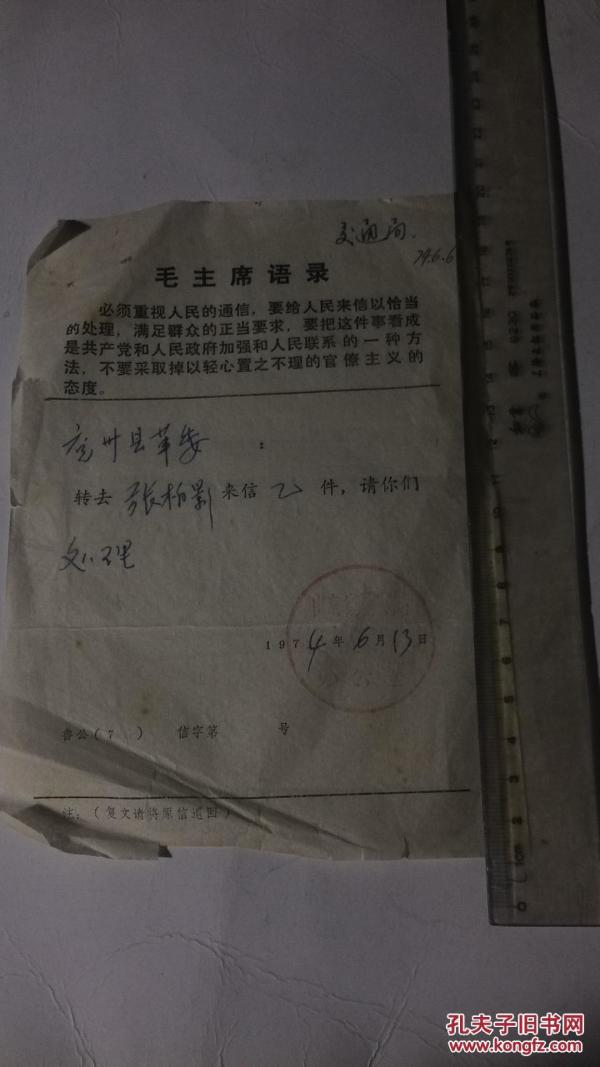 交通局.
74.6.6
毛主席语录
必须重视人民的通信，要给人民来信以恰当
的处理，满足群众的正当要求，要把这件事看成
是共产党和人民政府加强和人民联系的一种方
法，不要采取掉以轻心置之不理的官僚主义的
态度。
县革委：
转去张柏影来信乙件，请你们
处理
1974年6月13日
鲁公（7 ） 信字第 号
注：（复文请将原信退回）
0 1cm 2 3 4 5 6 7
孔夫子旧书网
www.kongfz.com